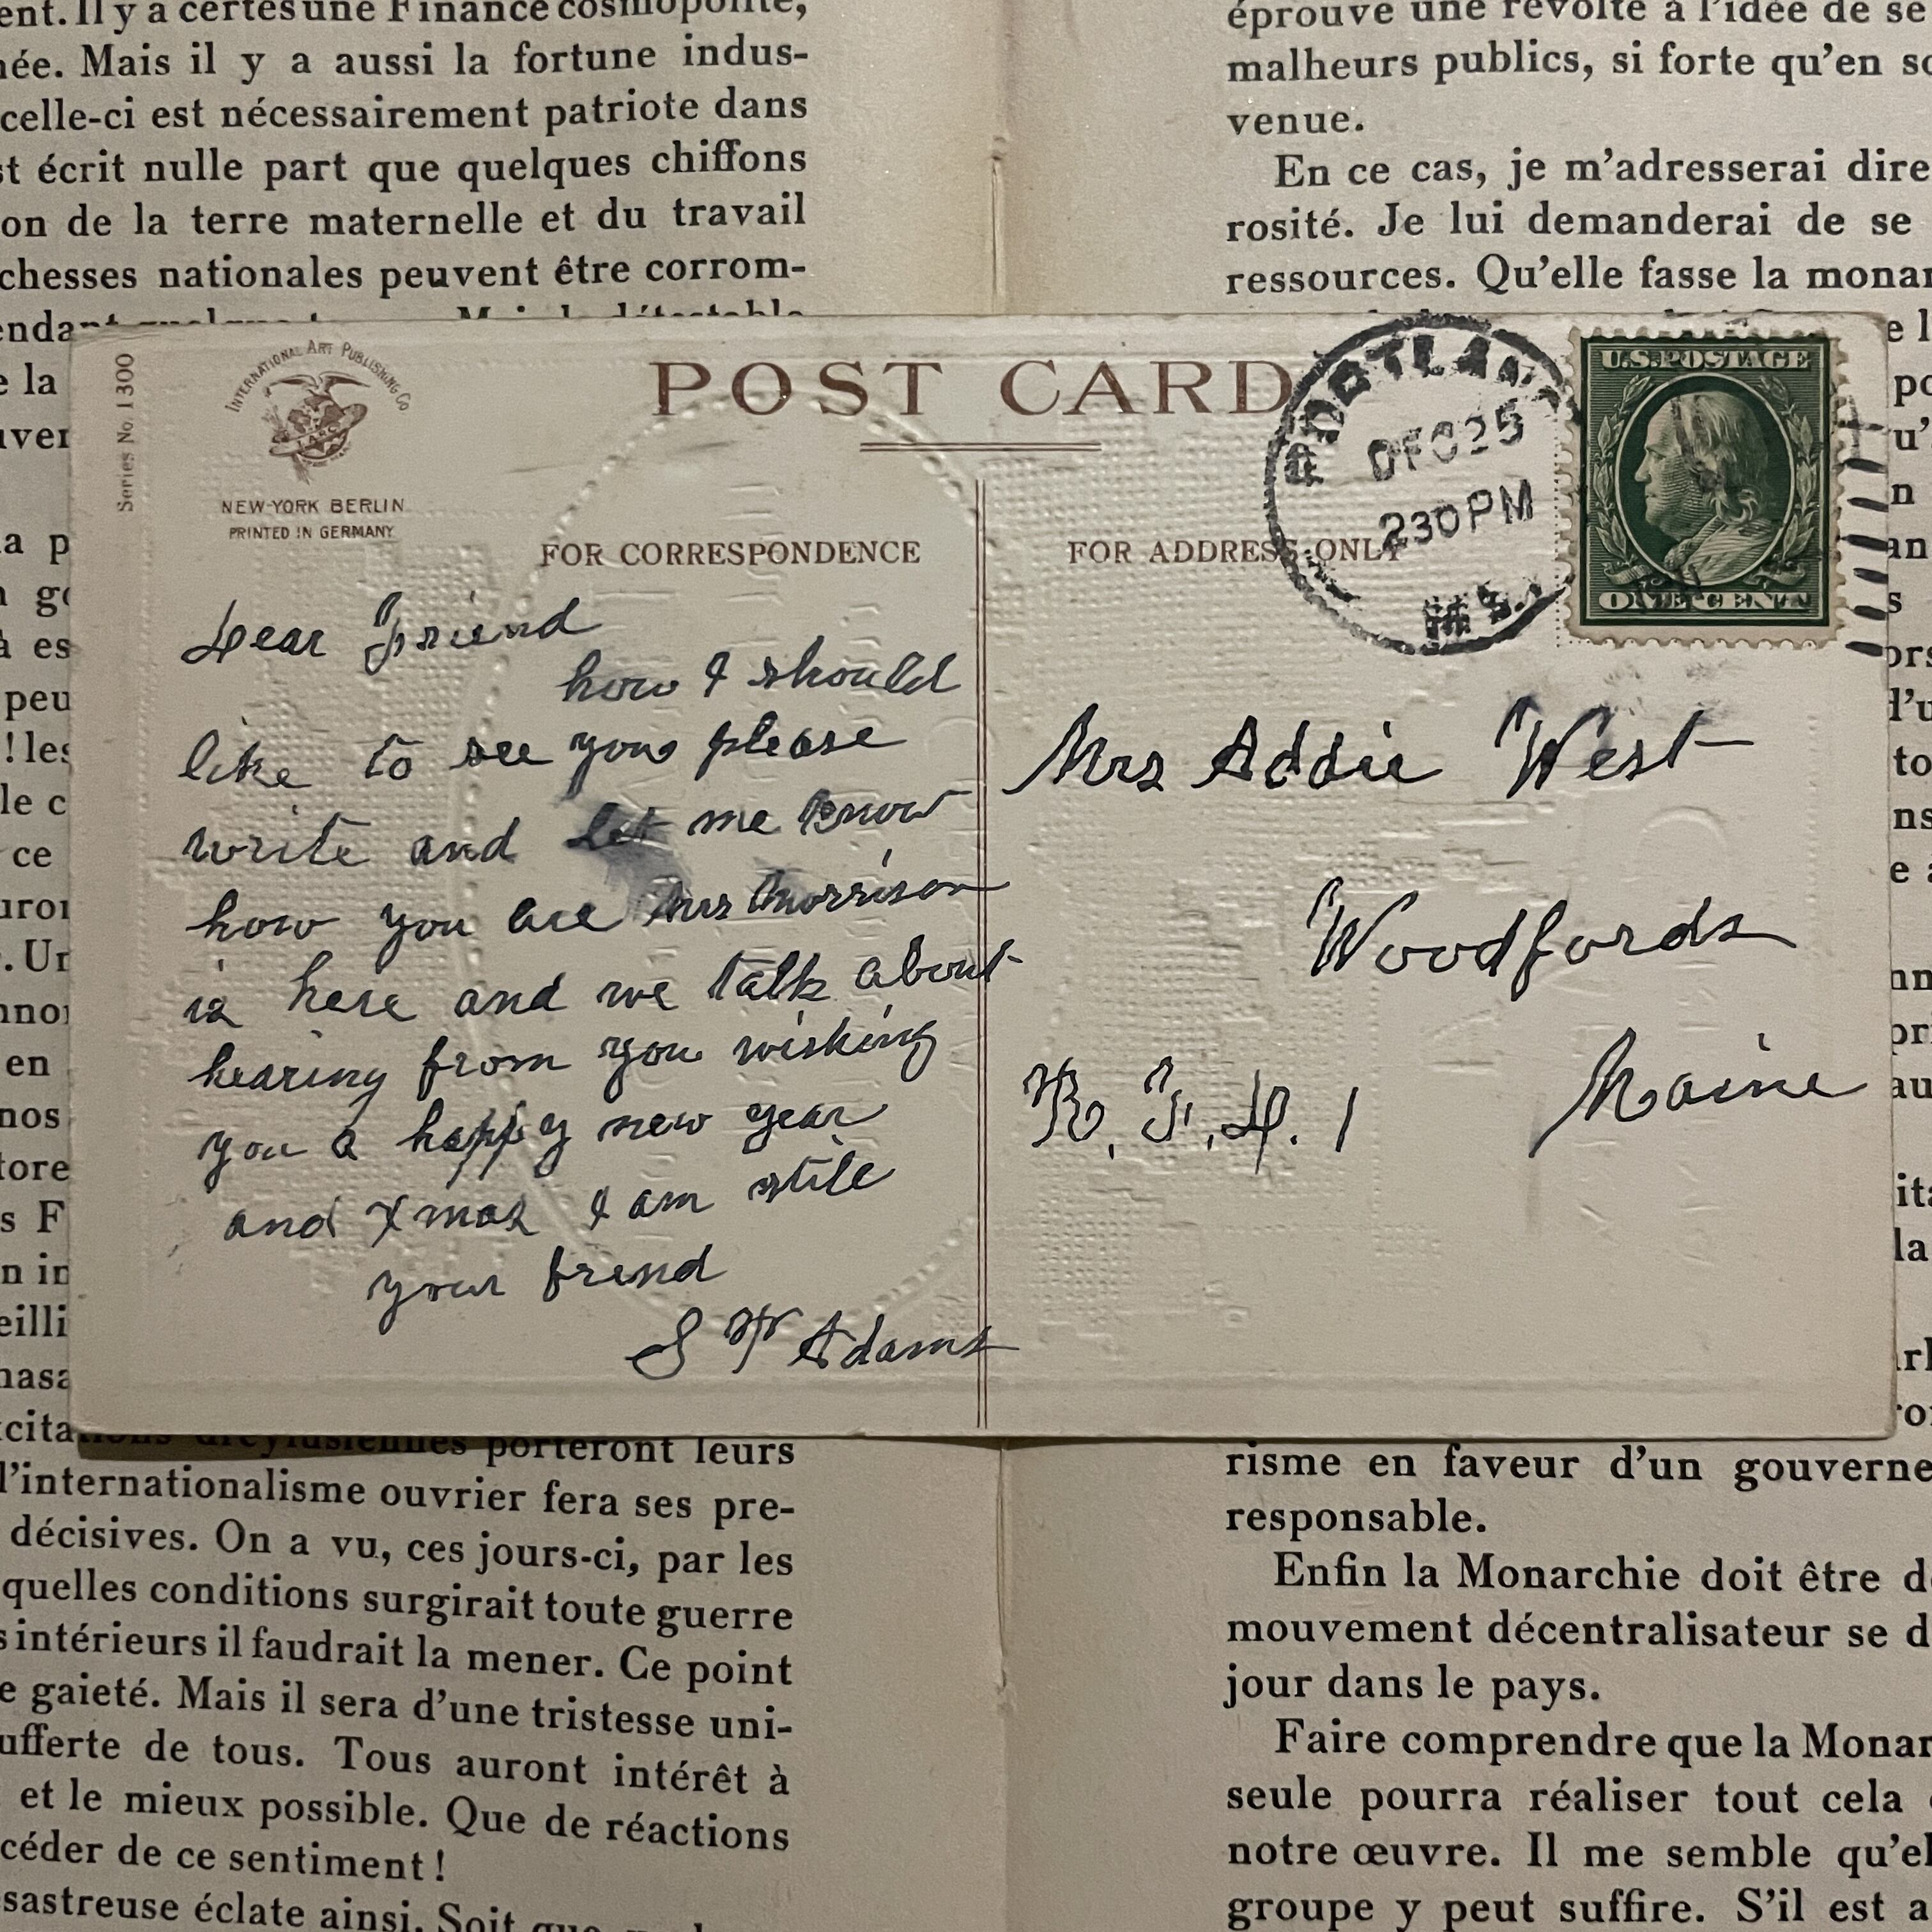 ent. Il y a certes une Finance cosmopolite,
née. Mais il y a aussi la fortune indus-
celle-ci est nécessairement patriote dans
st écrit nulle part que quelques chiffons
on de la terre maternelle et du travail
chesses nationales peuvent être corrom-
e la
a p
peu
! les
le c
ce
. Ur
en
nos
s F
n in
éprouve une révolte à l'idée de se
malheurs publics, si forte qu'en so
venue.
En ce cas, je m'adresserai dire
rosité. Je lui demanderai de se
ressources. Qu'elle fasse la monar
Series No. 1300
INTERNATIONAL ART PUBLISHING Co
NEW-YORK BERLIN
PRINTED IN GERMANY
POST CARD
FOR CORRESPONDENCE
Dear Friend
how I should
like to see you please
write and let me know
how you are Mrs Morrison
is here and we talk about
hearing from you wishing
you a happy new year
and Xmas I am stile
your frend
S W Adams
FOR ADDRESS ONLY
PORTLAND
DEC 25
230 PM
U.S. POSTAGE
ONE CENT
Mrs Addie West
Woodfords
Maine
R. F. D. 1
porteront leurs
l'internationalisme ouvrier fera ses pre-
décisives. On a vu, ces jours-ci, par les
quelles conditions surgirait toute guerre
s intérieurs il faudrait la mener. Ce point
e gaieté. Mais il sera d'une tristesse uni-
ufferte de tous. Tous auront intérêt à
et le mieux possible. Que de réactions
céder de ce sentiment !
sastreuse éclate ainsi. Soit que
risme en faveur d'un gouverne
responsable.
Enfin la Monarchie doit être d
mouvement décentralisateur se d
jour dans le pays.
Faire comprendre que la Monar
seule pourra réaliser tout cela
notre œuvre. Il me semble qu'el
groupe y peut suffire. S'il est a